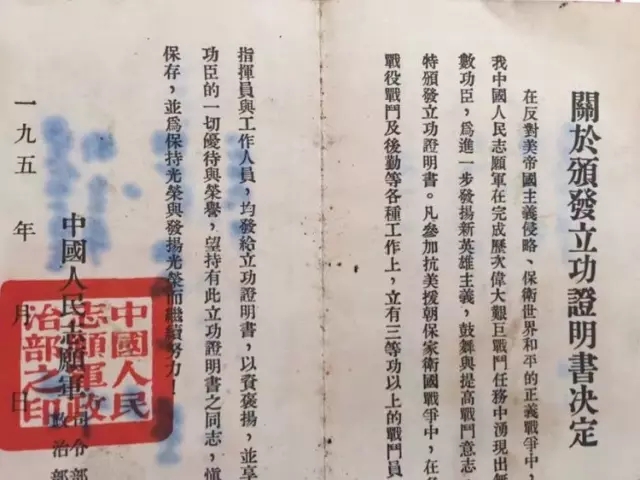 關於頒發立功證明書決定
在反對美帝國主義侵略、保衛世界和平的正義戰爭中，
我中國人民志願軍在完成歷次偉大艱巨戰鬥任務中湧現出無
數功臣，爲進一步發揚新英雄主義，鼓舞與提高戰鬥意志，
特頒發立功證明書。凡參加抗美援朝保家衛國戰爭中，在各
戰役戰鬥及後勤等各種工作上，立有三等功以上的戰鬥員
指揮員與工作人員，均發給立功證明書，以資褒揚，並享
功臣的一切優待與榮譽，望持有此立功證明書之同志，愼
保存，並爲保持光榮與發揚光榮而繼續努力！
中國人民志願軍司令部
政治部
一九五 年 月 日
中國人民
志願軍政
治部之印